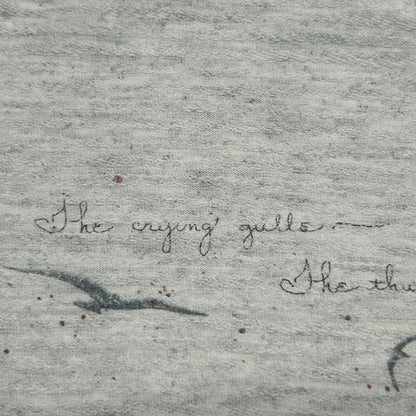 The crying gulls —
The thu